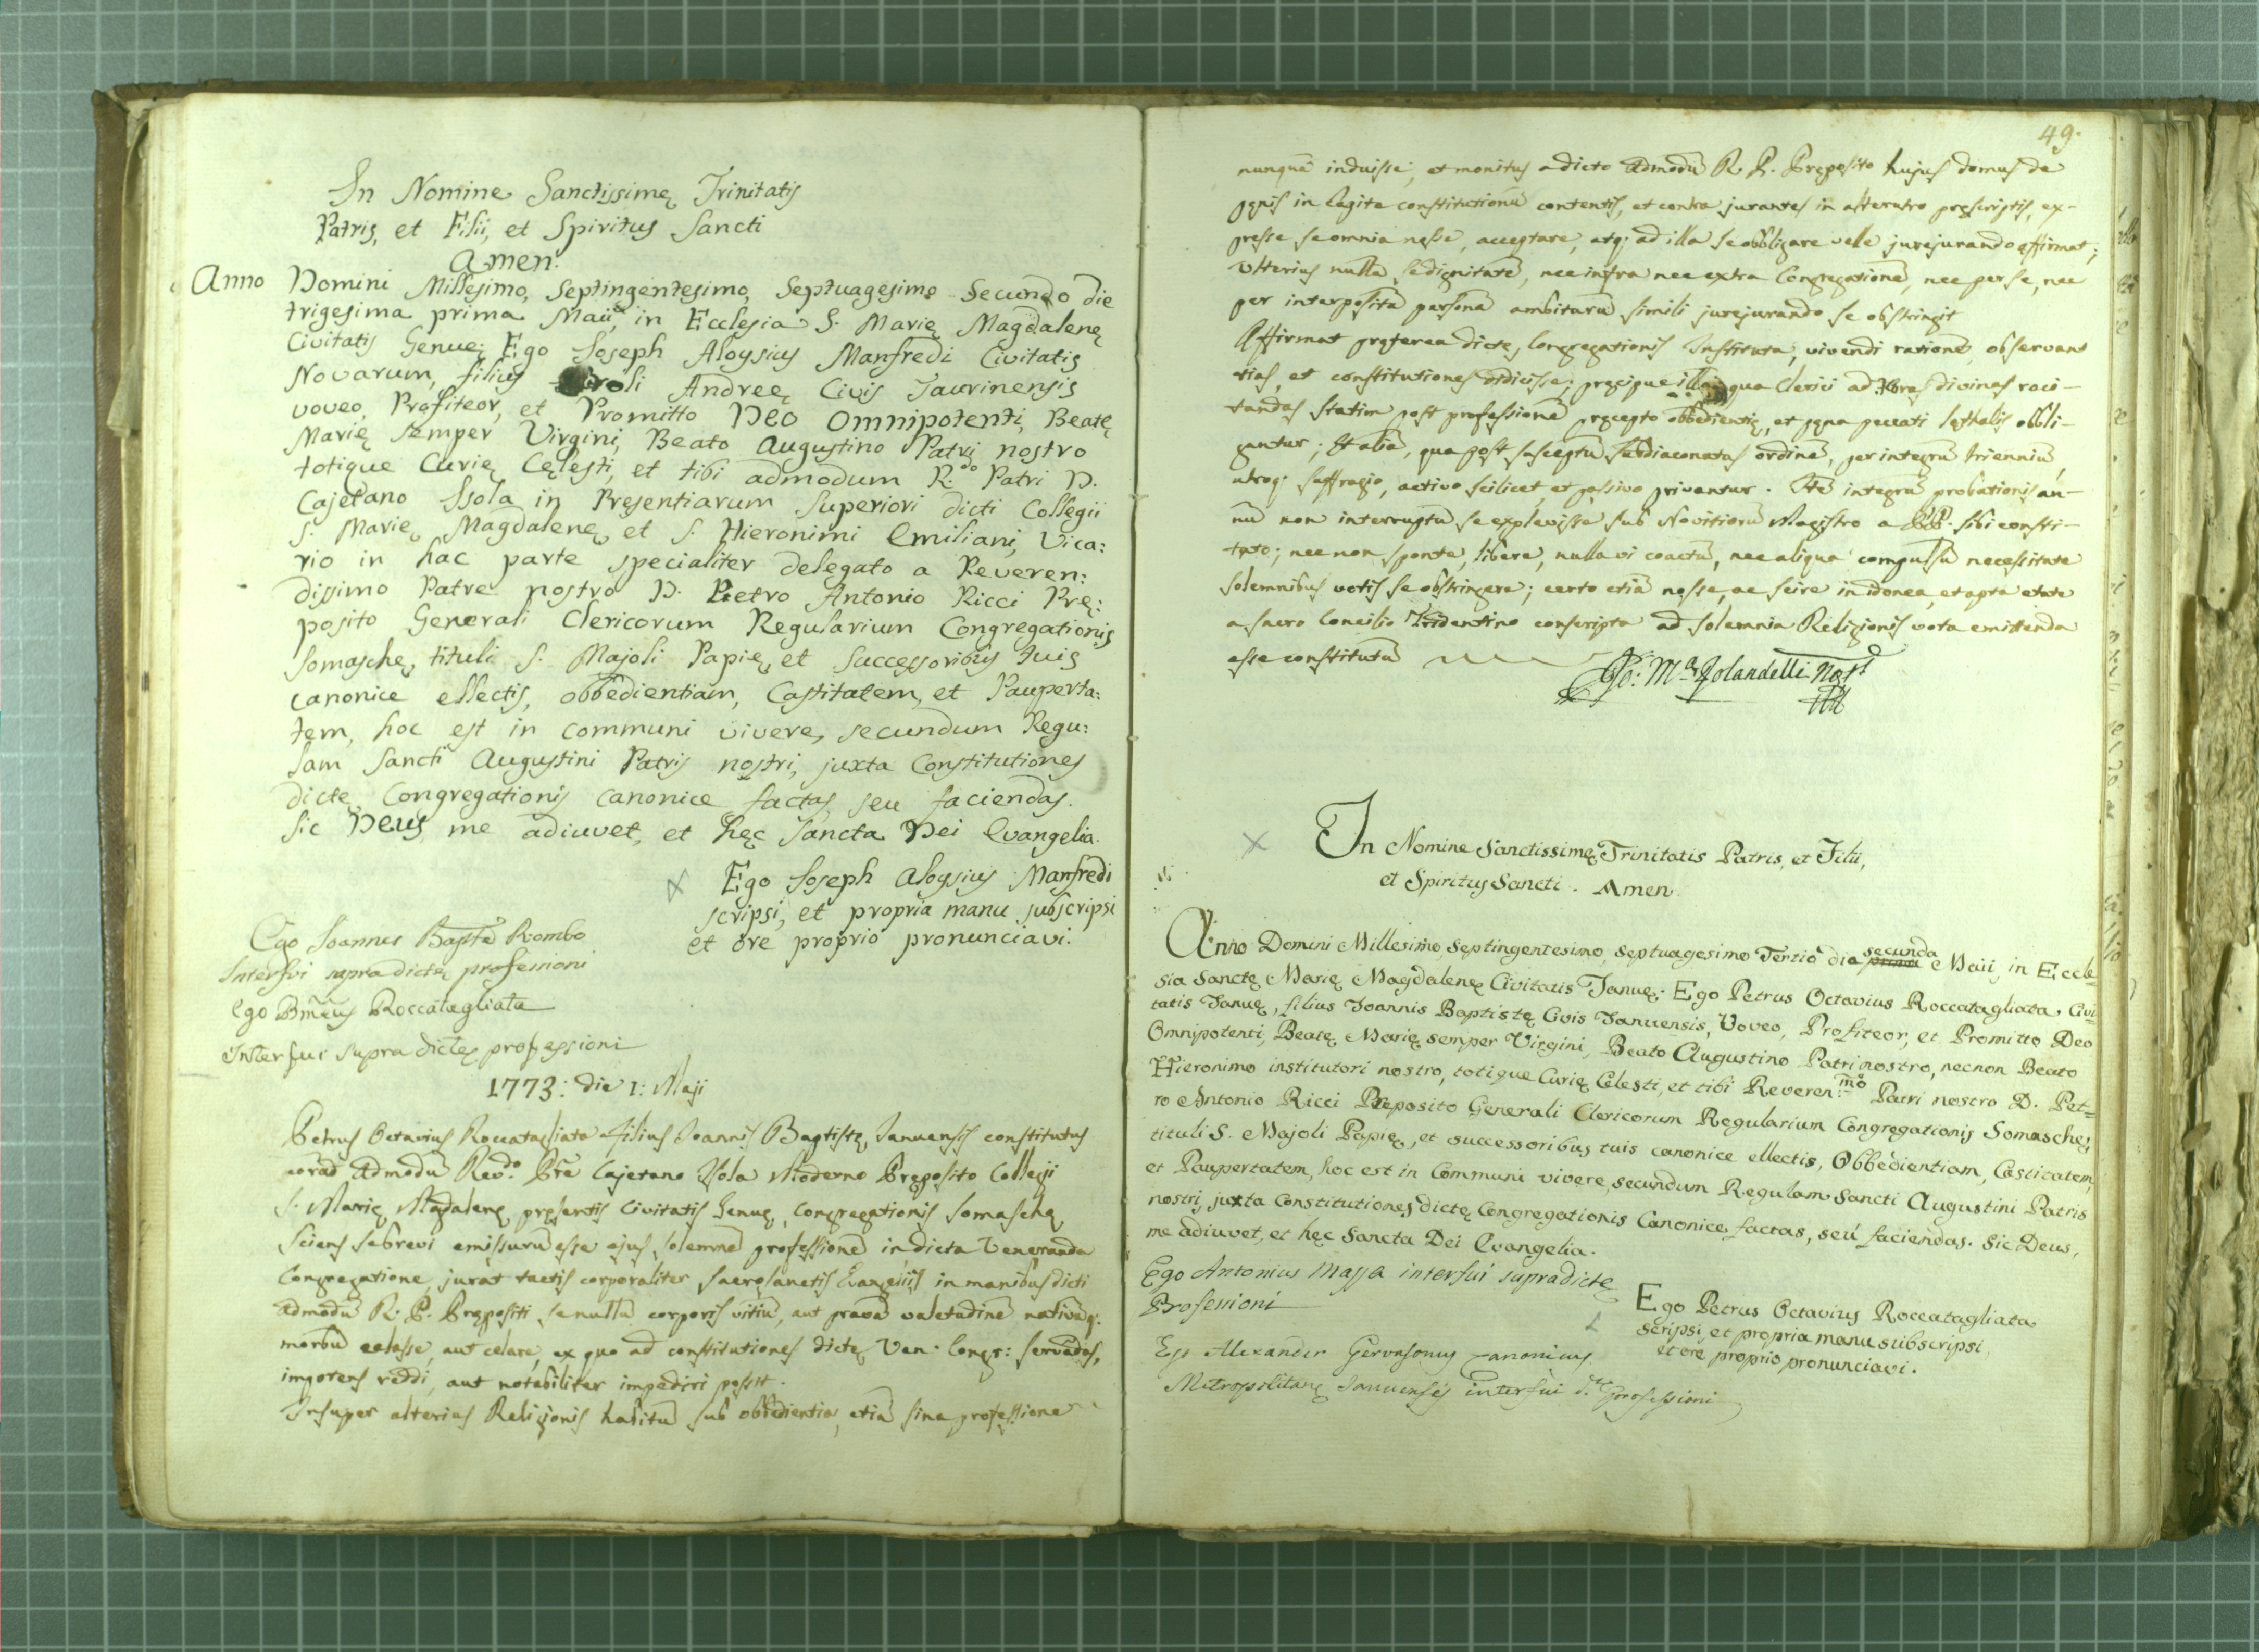 In Nomine Sanctissimę Trinitatis
Patris, et Filii, et Spiritus Sancti
Amen.
Anno Domini Millesimo, Septingentesimo, Septuagesimo Secundo die
trigesima prima Maii, in Ecclesia S. Marię Magdalenę
Civitatis Genuę; Ego Joseph Aloysius Manfredi Civitatis
Novarum, filius Caroli Andreę Civis Taurinensis
voveo, Profiteor, et Promitto Deo Omnipotenti, Beatę
Marię semper Virgini, Beato Augustino Patri nostro
totique Curię Cęlesti, et tibi admodum R.do Patri D.
Cajetano Isola in Presentiarum Superiori dicti Collegii
S. Marię Magdalenę et S. Hieronimi Emiliani, Vica:
rio in hac parte specialiter delegato a Reveren:
dissimo Patre nostro D. Pietro Antonio Ricci Prę:
posito Generali Clericorum Regularium Congregationis
Somaschę, tituli S. Majoli Papię, et successoribus tuis
canonice ellectis, obbedientiam, Castitatem, et Pauperta:
tem, hoc est in communi vivere, secundum Regu:
lam Sancti Augustini Patris nostri, juxta Constitutiones
dictę Congregationis canonice factas, seu faciendas.
Sic Deus me adiuvet, et hęc Sancta Dei Evangelia.
Ego Joseph Aloysius Manfredi
scripsi, et propria manu subscripsi
et ore proprio pronunciavi.
Ego Joannes Bapta Rombo
Interfui supradictę professioni
Ego Bmeus Roccatagliata
Interfui supra dictę professioni
1773: die 1: Maji
Petrus Octavius Roccatagliata filius Joannis Baptistę Januensis constitutus
corā admodū Revdo. Prē Cajetano Isola Moderno Pręposito Collegii
S. Marię Magdalenę pręsentis Civitatis Genuę, Congregationis Somaschę
sciens se brevi emissurū esse ejus solemnē professionē in dicta Veneranda
Congregatione, jurat tactis corporaliter sacrosanctis Evangeliis in manibus dicti
admodū R. P. Prępositi se nullū corporis vitiū, aut gravē valetudinē nativūq.
morbū celasse, aut celare, ex quo ad constitutiones dictę Ven. Congr: servādas,
impotens reddi, aut notabiliter impediri possit.
Insuper alterius Religionis habitū sub obbedientia, etiā sine professione
49.
nunquē induisse, et monitus a dicto admodū R. P. Pręposito hujus domus de
pęnis in lagita constitutionū contentis, et contra jurantes in alterutro pręscriptis, ex-
presse se omnia nosse, acceptare, atq; ad illa se obbligare velle jurejurando affirmat;
Ulterius nullā se dignitatē, nec infra nec extra Congregationē, nec per se, nec
per interpositā personā ambiturū simili jurejurando se obstringit
Affirmat pręterea dictę Congregationis Instituta, vivendi rationē, observan
tias, et constitutiones didicisse; pręcipue illas, qua Clerici ad Horas divinas reci-
tandas statim post professionē pręcepto obbedientię, et pęna peccati lęthalis obbli-
gantur; Et aliā, qua post susceptū subdiaconatus ordinē, per integrū trienniū
utroq. suffragio, activo scilicet, et passivo privantur. Itē integrū probationis an-
nū non interruptū se explevisse sub Novitiorū Magistro a PP. sibi consti-
tuto; nec non sponte, libere, nulla vi coactū, nec aliqua compulsū necessitate
solemnibus votis se obstringere; certo etiā nosse, ac scire in idonea, et apta etate
a sacro Concilio Tridentino conscripta ad solemnia Religionis vota emittenda
esse constitutū
Jo: Ma Jolandelli Nots
In Nomine Sanctissimę Trinitatis Patris, et Filii,
et Spiritus Sancti. Amen.
Anno Domini Millesimo, Septingentesimo, septuagesimo Tertio die prima secunda Maii, in Eccle=
sia Sanctę Marię Magdalenę Civitatis Januę; Ego Petrus Octavius Roccatagliata, Civi=
tatis Januę, filius Joannis Baptistę Civis Januensis, Voveo, Profiteor, et Promitto Deo
Omnipotenti, Beatę Marię semper Virgini, Beato Augustino Patri nostro, necnon Beato
Hieronimo institutori nostro, totique Curię Celesti, et tibi Reveren:mo Patri nostro D. Pet=
ro Antonio Ricci Pręposito Generali Clericorum Regularium Congregationis Somaschę,
tituli S. Majoli Papię, et successoribus tuis canonice ellectis, Obbedientiam, Castitatem,
et Paupertatem, hoc est in Communi vivere, secundum Regulam Sancti Augustini Patris
nostri, juxta Constitutiones dictę Congregationis Canonice factas, seu faciendas. Sic Deus,
me adiuvet, et hęc Sancta Dei Evangelia.
Ego Antonius Massa interfui supradictę
Professioni
Ego Petrus Octavius Roccatagliata
scripsi, et propria manu subscripsi,
et ore proprio pronunciavi.
Ego Alexander Gervasonus canonicus
Metropolitanę Januensis interfui d.te professioni